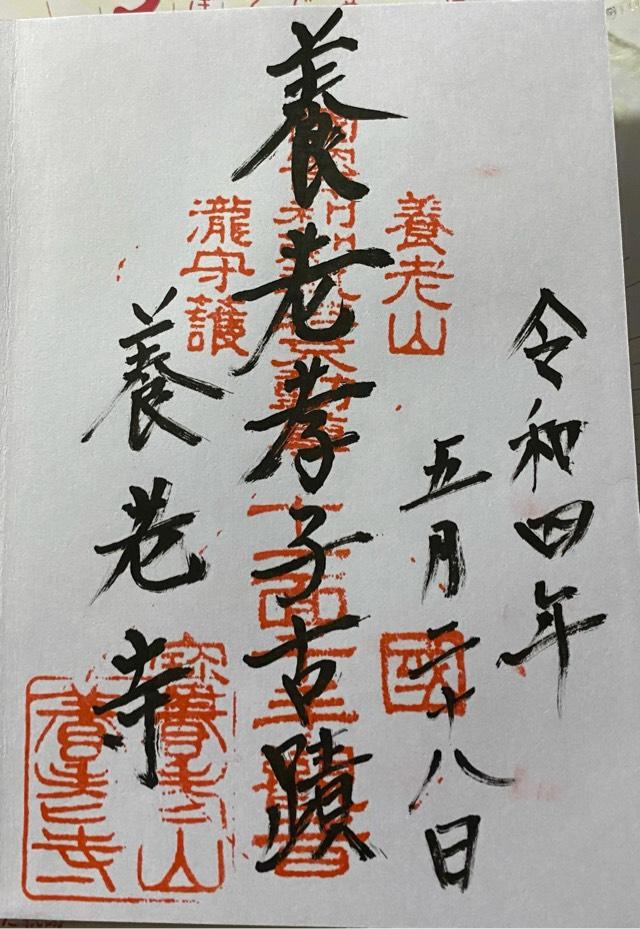 令和四年
五月二十八日
養老山
國
養老孝子古蹟
瀧守護
養老寺
養老山
養老寺